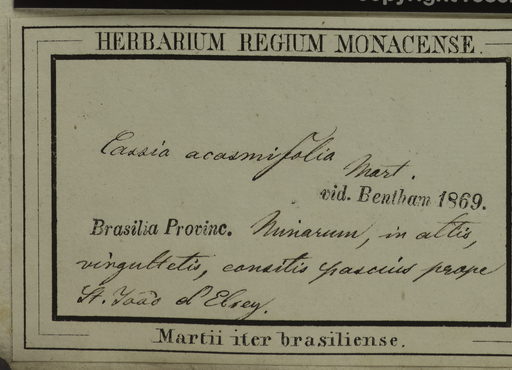 HERBARIUM REGIUM MONACENSE.
Cassia acosmifolia Mart.
vid. Bentham 1869.
Brasilia Provinc. Minarum, in altis,
virgultetis, consitis pascuis prope
St. João d'Elrey.
Martii iter brasiliense.